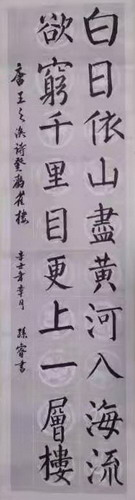 白日依山盡黃河入海流
欲窮千里目更上一層樓
唐王之渙詩登鸛雀樓
辛丑年幸月 孫睿書